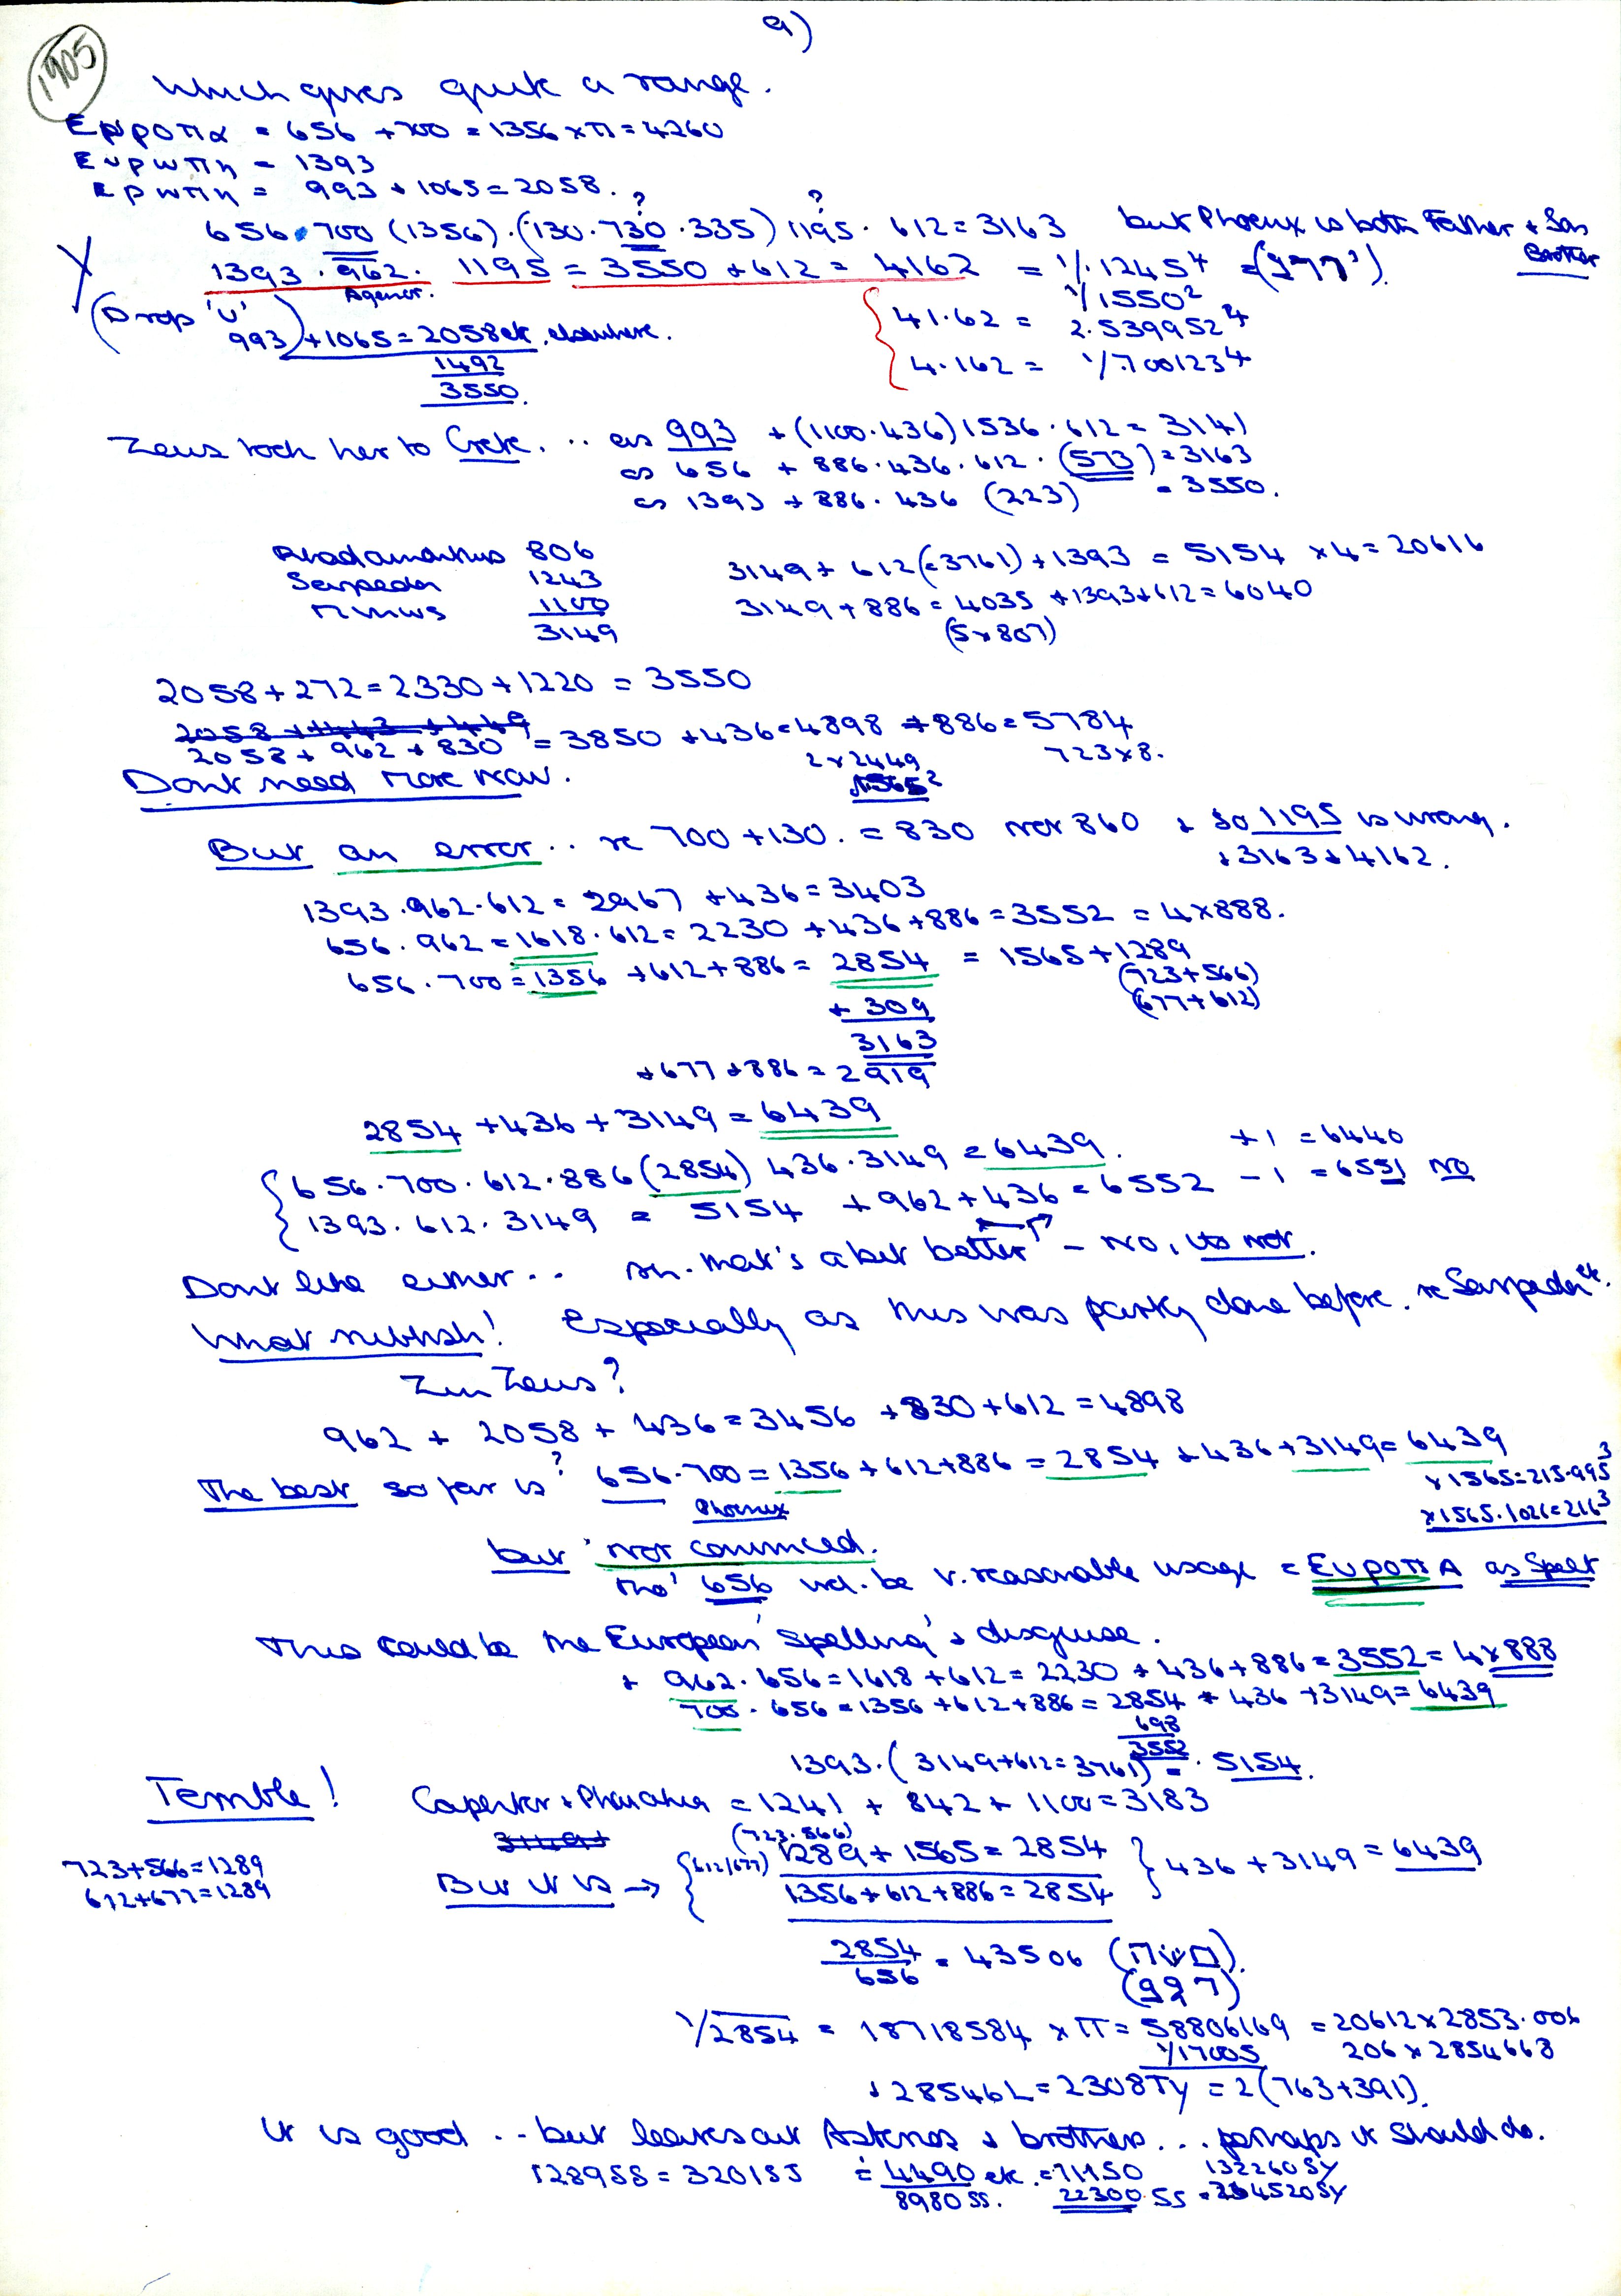 9)
1905
Which gives quite a range.
Ευροπα = 656 + 700 = 1356 x π = 4260
Ευρωπη = 1393
Ερωπη = 993 + 1065 = 2058.
? ?
656 . 700 (1356) . (130 . 730 . 335) 1195 . 612 = 3163 but Phoenix is both Father + Son
Brother
1393 . 962 . 1195 = 3550 + 612 = 4162 = 1/.1245⁴
Agenor. 1/1550²
(Drop 'U') 41.62 = 2.539952⁴
993 + 1065 = 2058 etc. elsewhere.
4.162 = 1/.7001234
1492
3550
Zeus took her to Crete. .. as 993 + (1100.436) 1536 . 612 = 3141
as 656 + 886 . 436 . 612 . (573) = 3163
as 1393 + 886 . 436 (223) = 3550.
Rhadamanthus 806
Sarpedon 1243
Minws 1100
3149
3149 + 612 (=3761) + 1393 = 5154 x 4 = 20616
3149 + 886 = 4035 + 1393 + 612 = 6040
(5x807)
2058 + 272 = 2330 + 1220 = 3550
2058 + 962 + 830 = 3850 + 436 = 4898 + 886 = 5784
2 x 2449 723 x 8.
Dont need more now.
But an error .. re 700 + 130. = 830 not 860 + so 1195 is wrong.
+ 3163 + 4162.
1393 . 962 . 612 = 2967 + 436 = 3403
656 . 962 = 1618 . 612 = 2230 + 436 + 886 = 3552 = 4 x 888.
656 . 700 = 1356 + 612 + 886 = 2854 = 1565 + 1289
(723 + 566)
(677 + 612)
+ 309
3163
+ 677 + 886 = 2919
2854 + 436 + 3149 = 6439
656 . 700 . 612 . 886 (2854) 436 . 3149 = 6439. + 1 = 6440
1393 . 612 . 3149 = 5154 + 962 + 436 = 6552 - 1 = 6551 NO
Dont like either .. Ah. that's a bit better - No, its not.
What rubbish! Especially as this was partly done before. re Sarpedon etc.
Zeus?
962 + 2058 + 436 = 3456 + 830 + 612 = 4898
The best so far is ? 656 . 700 = 1356 + 612 + 886 = 2854 + 436 + 3149 = 6439
Phoenix
x 1565 = 215.995³
x 1565.1026 = 216³
but 'not convinced.
tho' 656 wd. be v. reasonable usage = ΕυροπΑ as spelt
This could be the 'European' spelling' + disguise.
+ 962 . 656 = 1618 + 612 = 2230 + 436 + 886 = 3552 = 4 x 888
700 . 656 = 1356 + 612 + 886 = 2854 + 436 + 3149 = 6439
698
3552
1393 . (3149 + 612 = 3761) = 5154.
Terrible! = 1241 + 842 + 1100 = 3183
(723.566)
723 + 566 = 1289
612 + 677 = 1289
But it is → (612/677) 1289 + 1565 = 2854
1356 + 612 + 886 = 2854
436 + 3149 = 6439
2854
656 = 43506
1/2854 = 18718584 x π = 58806169 = 20612 x 2853.006
1/17005 206 x 2854668
+ 28546L = 2308TY = 2(763 + 391).
It is good .. but leaves out + brothers ... perhaps it should do.
1289SS = 32015J = 4490 etc. = 71150 132260SY
8980 SS. 22300 SS = 264520SY